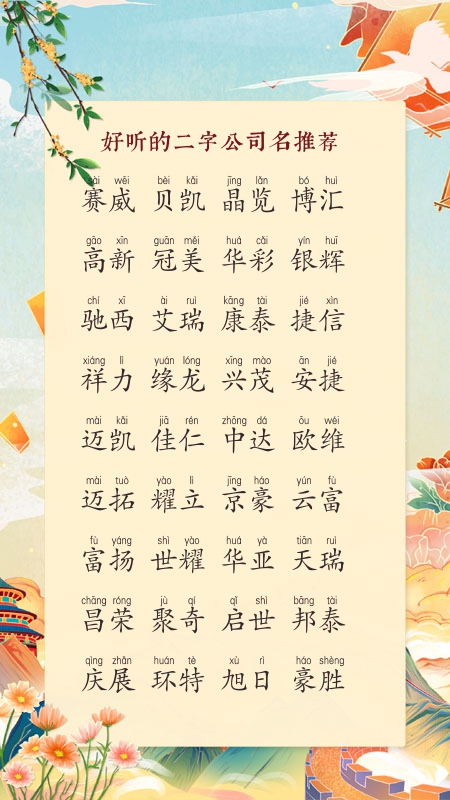 好听的二字公司名推荐
sài wēi bèi kǎi jīng lǎn bó huì
赛威 贝凯 晶览 博汇
gāo xīn guān měi huá cǎi yín huī
高新 冠美 华彩 银辉
chí xī ài ruì kāng tài jié xìn
驰西 艾瑞 康泰 捷信
xiáng lì yuán lóng xīng mào ān jié
祥力 缘龙 兴茂 安捷
mài kǎi jiā rén zhōng dá ōu wéi
迈凯 佳仁 中达 欧维
mài tuò yào lì jīng háo yún fù
迈拓 耀立 京豪 云富
fù yáng shì yào huá yà tiān ruì
富扬 世耀 华亚 天瑞
chāng róng jù qí qǐ shì bāng tài
昌荣 聚奇 启世 邦泰
qìng zhǎn huán tè xù rì háo shèng
庆展 环特 旭日 豪胜